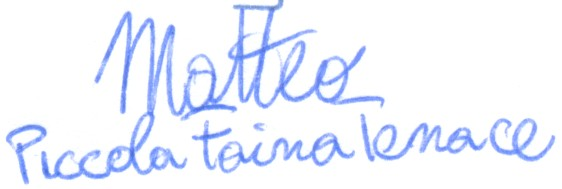 Matteo
Piccola faina tenace